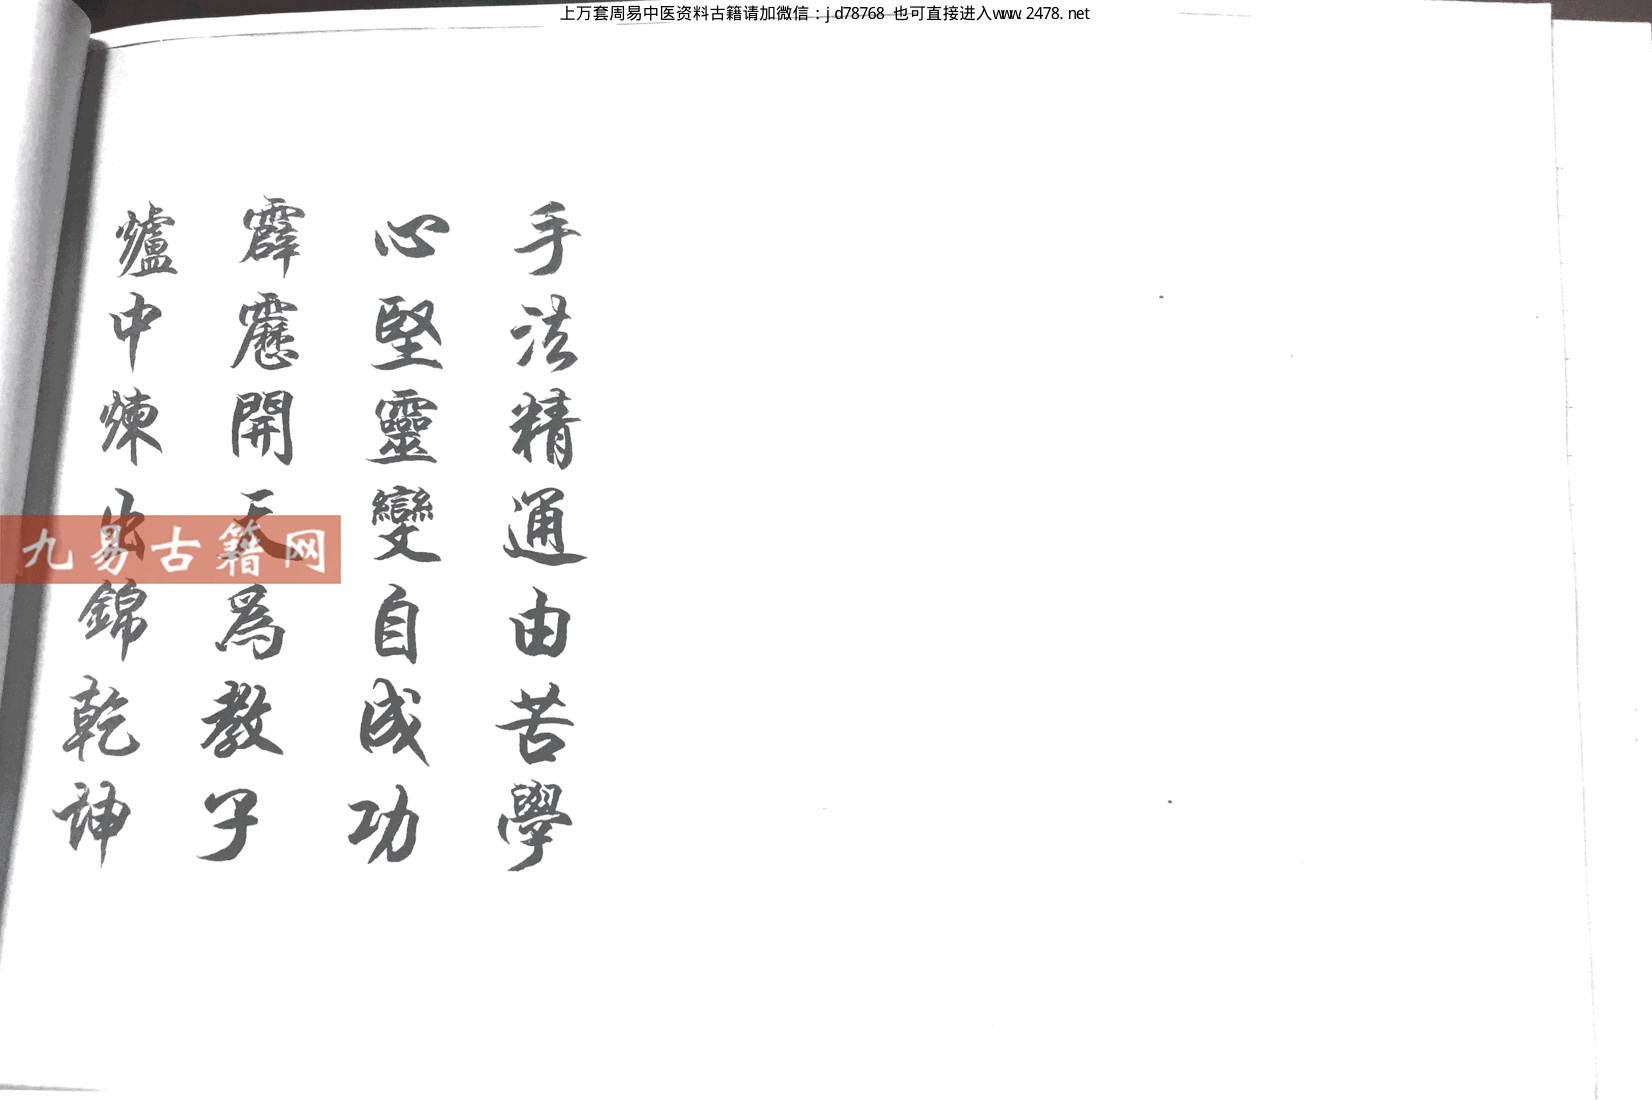 上万套周易中医资料古籍请加微信：jd78768 也可直接进入www.2478.net
手法精通由苦學
心堅靈變自成功
霹靂開天為教子
爐中煉出錦乾坤
九易古籍网